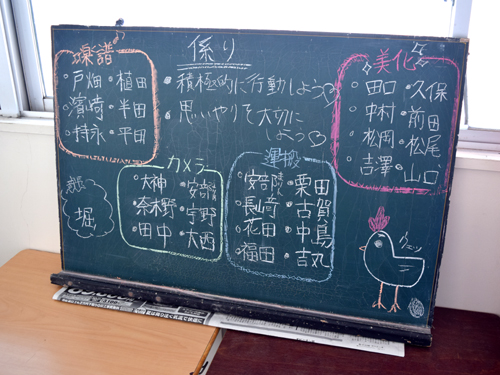 係り
積極的に行動しよう
思いやりを大切に
しよう
楽譜
戸畑 植田
濱崎 半田
持永 平田
美化
田口 久保
中村 前田
松岡 松尾
吉澤 山口
カメラ
大神 安部
奈木野 宇野
田中 大西
運搬
安部 栗田
長崎 古賀
花田 中島
福田 吉丸
堀